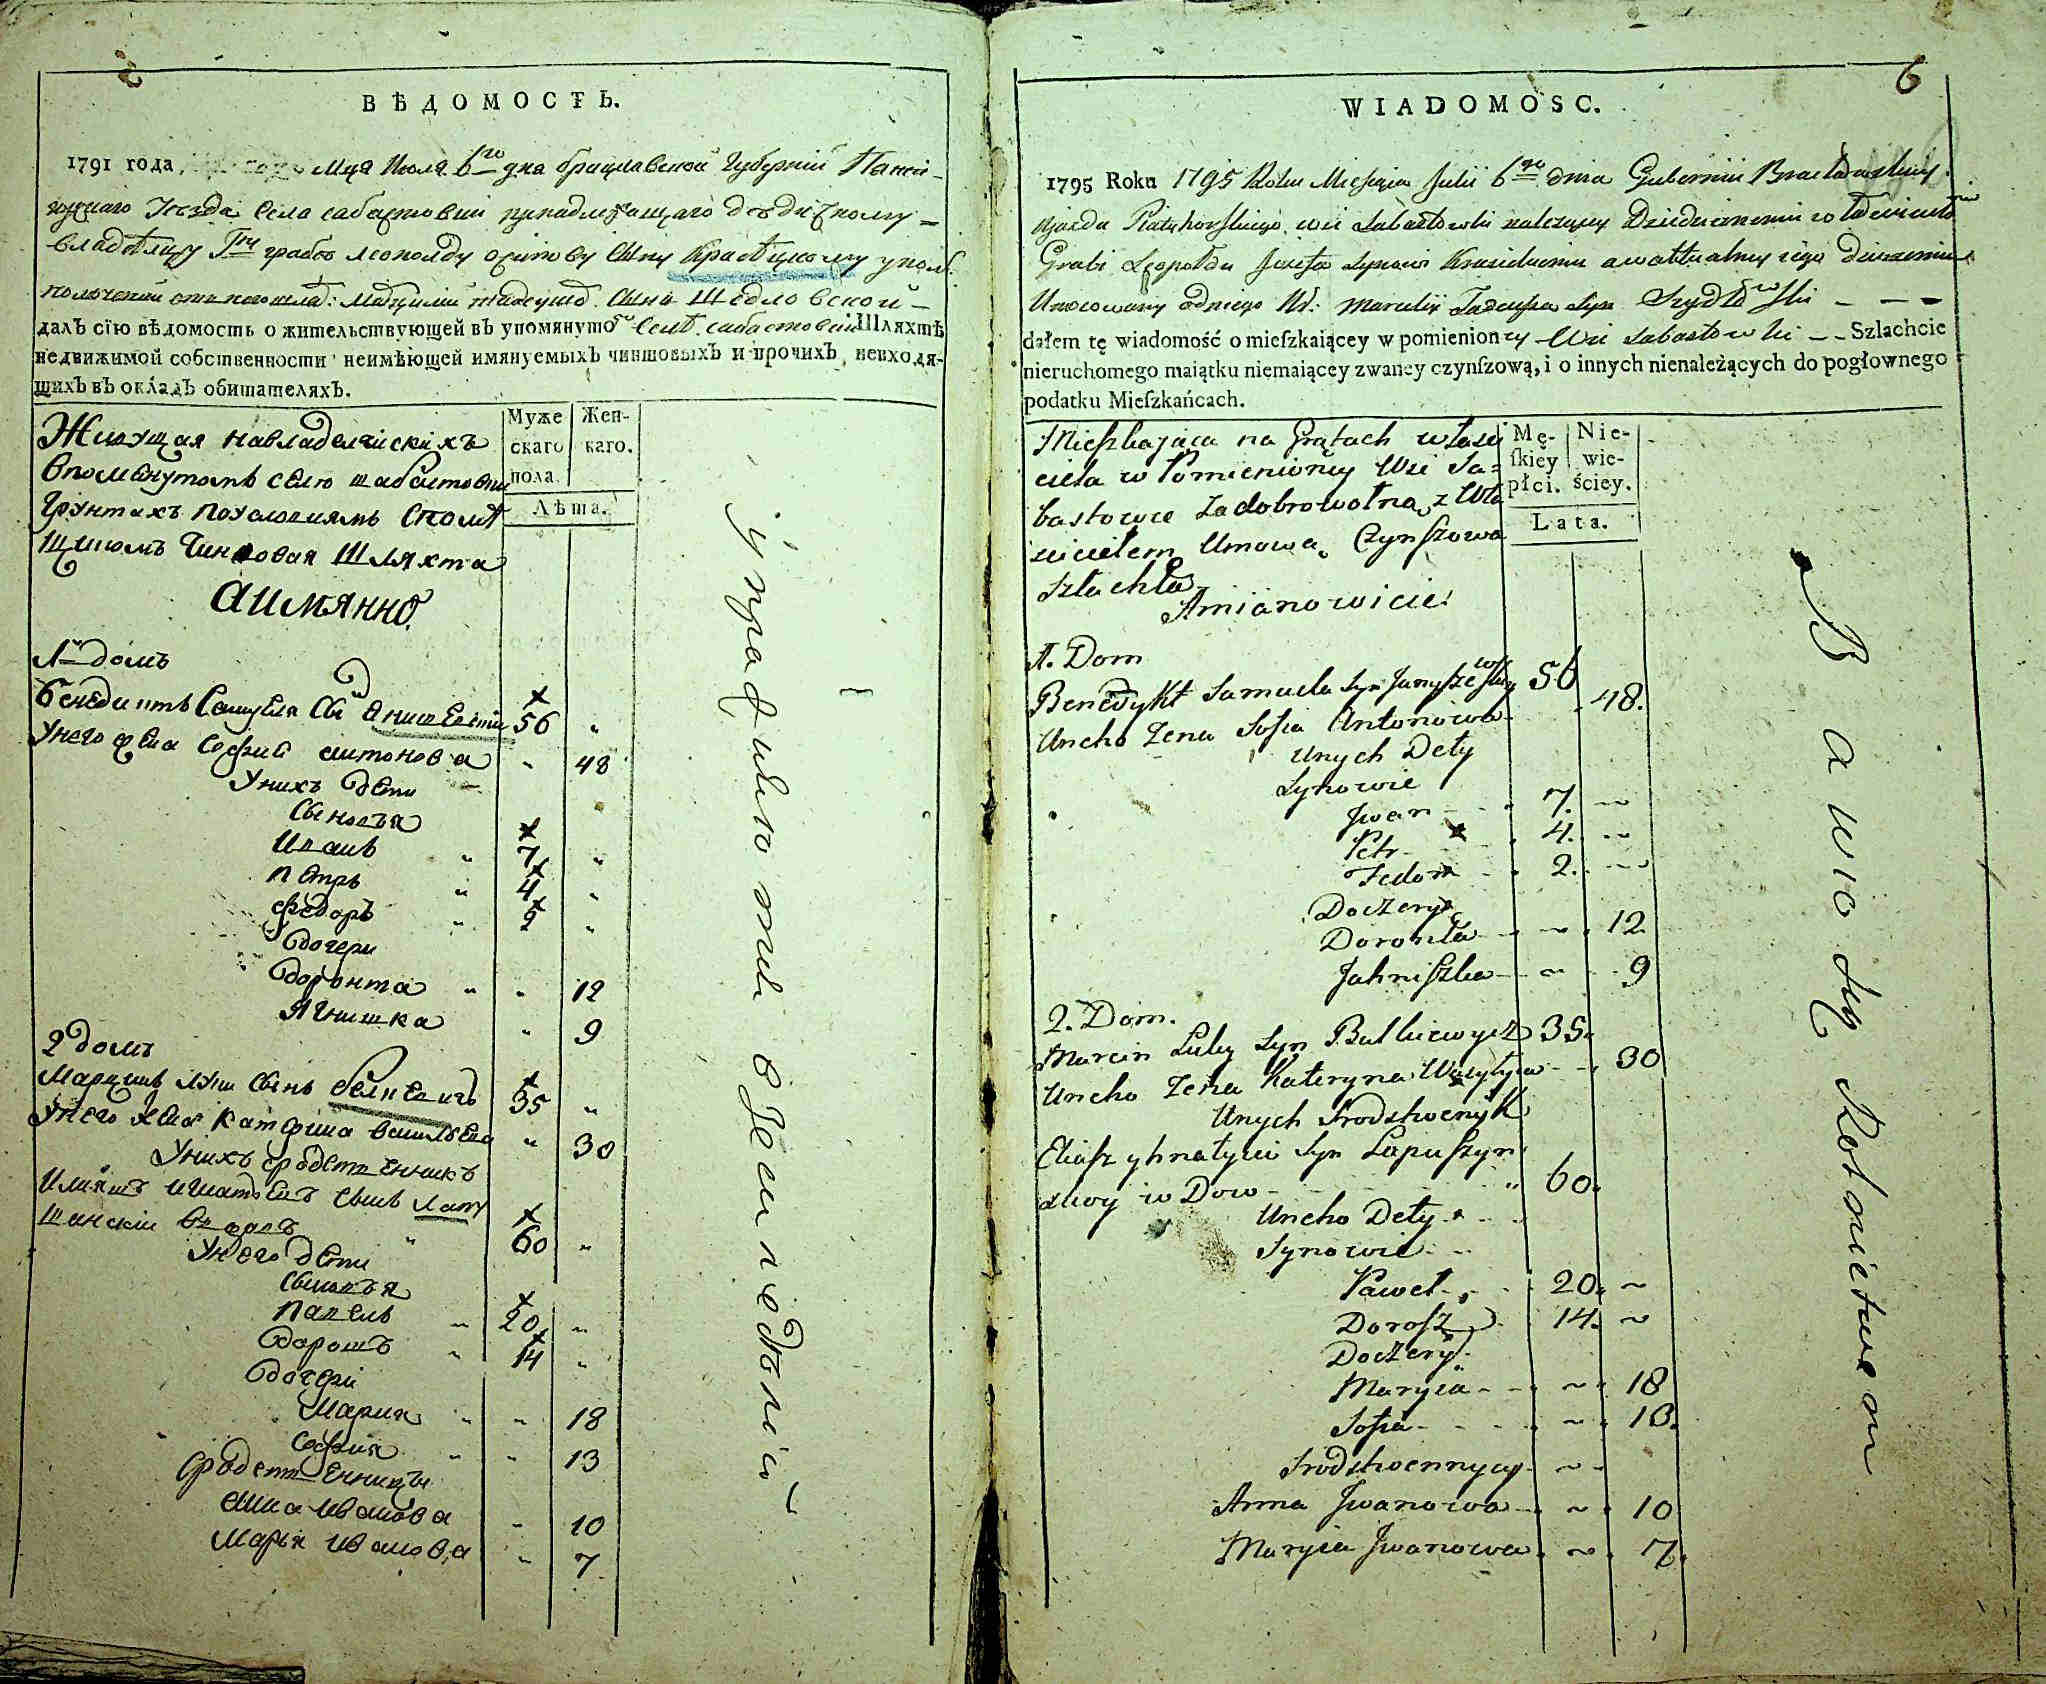 ВѢДОМОСТЬ.
1791 года мца Июля 6го дня брацлавской Губерніи Пяти
горскаго уезда села сабастовки принадлежащаго дѣдичному
владѣлцу Гну графу леополду осипову сыну Красѣцкому
сына
далъ сїю вѣдомость о жительствующей въ упомянутой селѣ сабастовки Шляхтѣ
недвижимой собственности неимѣющей имянуемыхъ чиншовыхъ и прочихъ, невходя-
щихъ въ окладъ обитателяхъ.
Живущая навладелческихъ
впомянутомъ селе шабастовки
Грунтахъ поусловиямъ спомѣ
щикомъ Чиншовая Шляхта
аимянно.
Муже
скаго
пола.
Жен-
каго.
Лѣта.
1й домъ
бенедиктъ Самуеля сы Янишевскій 56 „
Унего жена София антонова „ 48
Унихъ дети
Сыновъя
Иванъ „ 7 „
петръ „ 4 „
федоръ „ 2 „
дочери
доронта „ „ 12
Ягнишка „ 9
2 домъ
Марцинъ луки сынъ белкевичъ 35 „
Унего жена катерина василева „ 30
Унихъ сродственникъ
Илияшъ игнатовъ сынъ Лапу
шанскій вдовъ „ 60 „
Унего дети
Сыновъя
павелъ „ 20 „
дорошъ „ 14 „
дочери
Мария „ „ 18
София „ „ 13
сродственницы
анна иванова „ 10
Марья иванова „ 7
упражнѣютси вземледѣліи
6
WIADOMOSC.
1795 Roku 1795 Roku Miesiąca Julii 6go dnia Gubernii Bracławskiey
ujazdu Piatyhorskiego wsi Sabastowki należącey Dziedzicznemu właścicielowi
Grabi Leopoldu Juzefa Synowi Krasickiemu
Umocowany odniego Ur: Marcelij Tadeusza Syn Szydłowski – – –
dałem tę wiadomość o mieſzkaiącey w pomienioney Wsi Sabastowki – – Szlachcie
nieruchomego maiątku niemaiącey zwaney czynſzową, i o innych nienależących do pogłownego
podatku Mieſzkańcach.
Mieszkająca na Grątach właści
ciela w Pomienioney Wsi Sa=
bastowce zadobrowolną z Wła
scicielem Umową Czynszowa
Szlachta
Amianowicie:
Mę-
ſkiey
płci.
Nie-
wie-
ściey.
Lata.
1. Dom
Benedykt Samuela Syn Janyszewsky 56
Uneho Żena Sofia Antonowa 48.
Unych Dety
Synowie
Jwan 7. ~
Petr 4. ~
Fedor 2. ~
Doczery
Doronta ~ 12
Jahniszka ~ 9
2. Dom.
Marcin Luky Syn Bulkiewycz 35.
Uneho Żena Kateryna Wasylyia 30
Unych Srodstwenyk
Eliasz yhnatyiu Syn Lapuszyn
skoy w Dow 60.
Uneho Dety
Synowie
Paweł 20. ~
Dorosz 14. ~
Doczery
Maryia ~ 18
Sofia ~ 13.
Srodstwennycy ~
Anna Jwanowa ~ 10
Maryia Jwanowa ~ 7.
Bawią się Rolnictwem